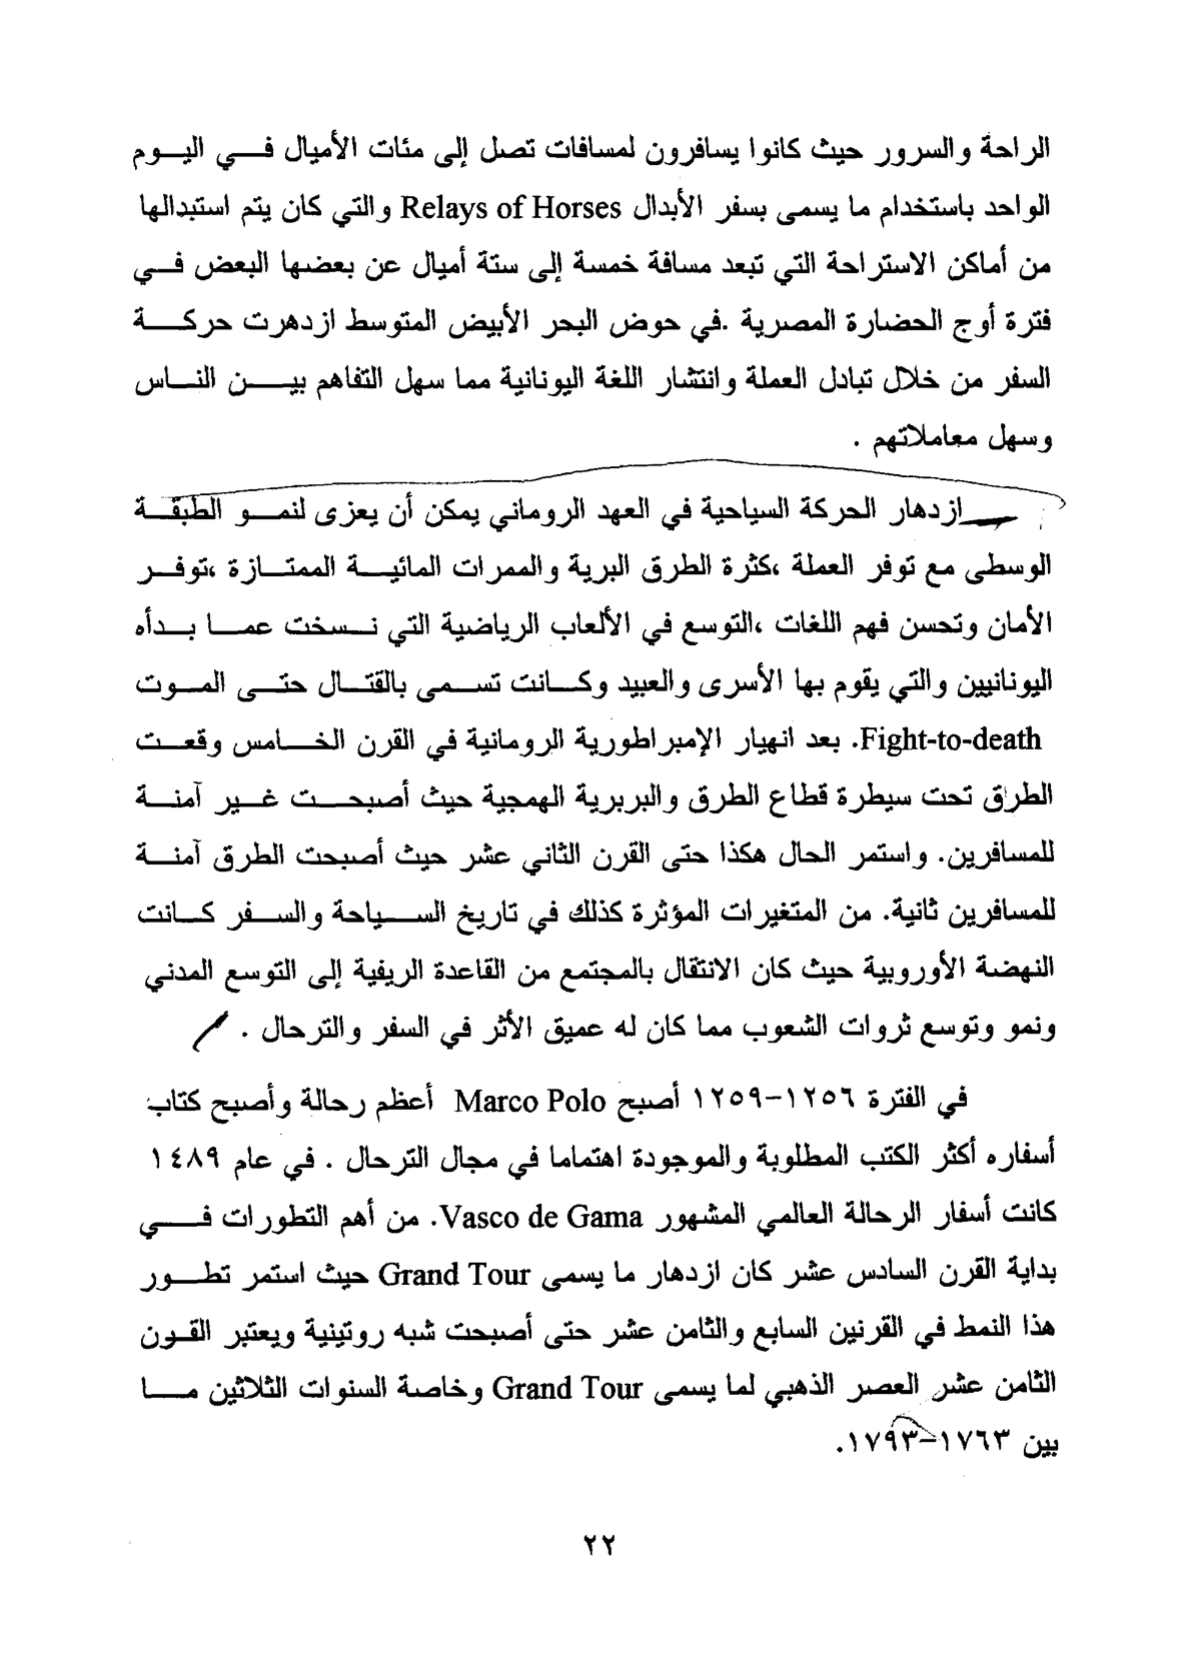 الراحة والسرور حيث كانوا يسافرون لمسافات تصل إلى مئات الأميال في اليوم
الواحد باستخدام ما يسمى بسفر الأبدال Relays of Horses والتي كان يتم استبدالها
من أماكن الاستراحة التي تبعد مسافة خمسة إلى ستة أميال عن بعضها البعض في
فترة أوج الحضارة المصرية .في حوض البحر الأبيض المتوسط ازدهرت حركة
السفر من خلال تبادل العملة وانتشار اللغة اليونانية مما سهل التفاهم بين الناس
وسهل معاملاتهم .
ازدهار الحركة السياحية في العهد الروماني يمكن أن يعزى لنمو الطبقة
الوسطى مع توفر العملة ،كثرة الطرق البرية والممرات المائية الممتازة ،توفر
الأمان وتحسن فهم اللغات ،التوسع في الألعاب الرياضية التي نسخت عما بدأه
اليونانيين والتي يقوم بها الأسرى والعبيد وكانت تسمى بالقتال حتى الموت
Fight-to-death. بعد انهيار الإمبراطورية الرومانية في القرن الخامس وقعت
الطرق تحت سيطرة قطاع الطرق والبربرية الهمجية حيث أصبحت غير آمنة
للمسافرين. واستمر الحال هكذا حتى القرن الثاني عشر حيث أصبحت الطرق آمنة
للمسافرين ثانية. من المتغيرات المؤثرة كذلك في تاريخ السياحة والسفر كانت
النهضة الأوروبية حيث كان الانتقال بالمجتمع من القاعدة الريفية إلى التوسع المدني
ونمو وتوسع ثروات الشعوب مما كان له عميق الأثر في السفر والترحال .
في الفترة ١٢٥٦-١٢٥٩ أصبح Marco Polo أعظم رحالة وأصبح كتاب
أسفاره أكثر الكتب المطلوبة والموجودة اهتماما في مجال الترحال . في عام ١٤٨٩
كانت أسفار الرحالة العالمي المشهور Vasco de Gama. من أهم التطورات في
بداية القرن السادس عشر كان ازدهار ما يسمى Grand Tour حيث استمر تطور
هذا النمط في القرنين السابع والثامن عشر حتى أصبحت شبه روتينية ويعتبر القون
الثامن عشر العصر الذهبي لما يسمى Grand Tour وخاصة السنوات الثلاثين ما
بين ١٧٦٣-١٧٩٣.
٢٢